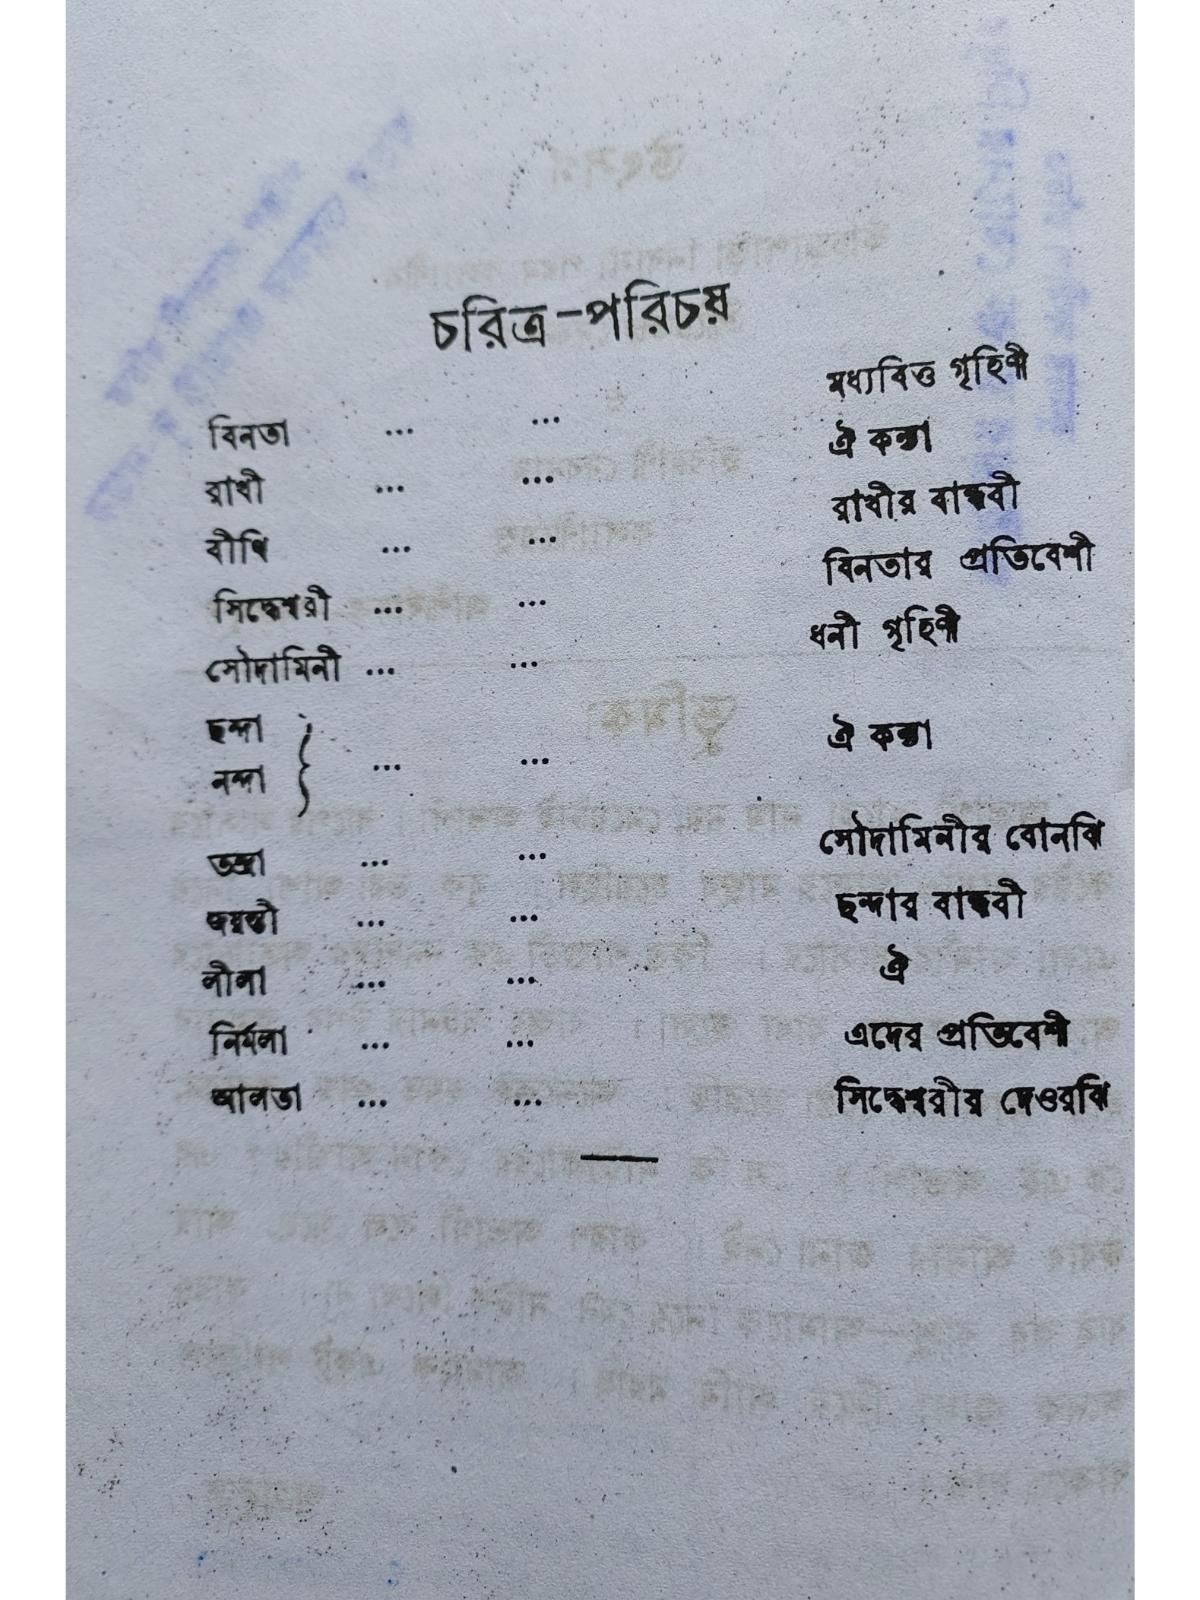 চরিত্র-পরিচয়
বিনতা ... ... মধ্যবিত্ত গৃহিণী
রাখী ... ... ঐ কন্যা
বীথি ... ... রাখীর বান্ধবী
সিদ্ধেশ্বরী ... ... বিনতার প্রতিবেশী
সৌদামিনী ... ... ধনী গৃহিণী
ছন্দা
নন্দা } ... ... ঐ কন্যা
তন্দ্রা ... ... সৌদামিনীর বোনঝি
জয়ন্তী ... ... ছন্দার বান্ধবী
লীলা ... ... ঐ
নির্মলা ... ... এদের প্রতিবেশী
আলতা ... ... সিদ্ধেশ্বরীর দেওরঝি